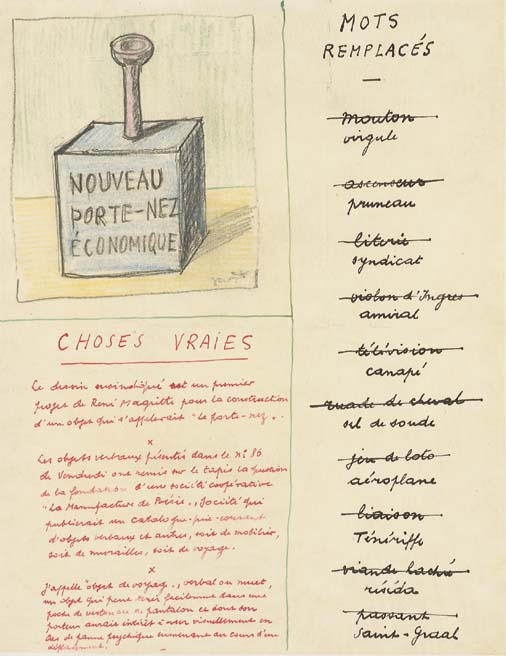 NOUVEAU
PORTE-NEZ
ÉCONOMIQUE
CHOSES VRAIES
Ce dessin est un premier
projet de René Magritte pour la construction
d'un objet qui s'appellerait "le porte-nez".
x
Les objets verbaux présentés dans le n° 86
de Vendredi ont remis sur le tapis la question
de la fondation d'une société coopérative
"La Manufacture de Poésie", société qui
publierait un catalogue-prix-courant
d'objets verbaux et autres, soit de mobilier,
soit de murailles, soit de voyage.
x
J'appelle "objet de voyage", verbal ou muet,
un objet qui peut tenir facilement dans une
poche de veston ou de pantalon et dont son
porteur aurait intérêt à user visuellement en
cas de panne psychique survenant au cours d'un
déplacement.
MOTS
REMPLACÉS
mouton
virgule
ascenseur
pruneau
literie
syndicat
violon d'Ingres
amiral
télévision
canapé
ruade de cheval
sel de soude
jeu de loto
aéroplane
liaison
Ténériffe
viande hachée
réséda
passant
Saint-Graal